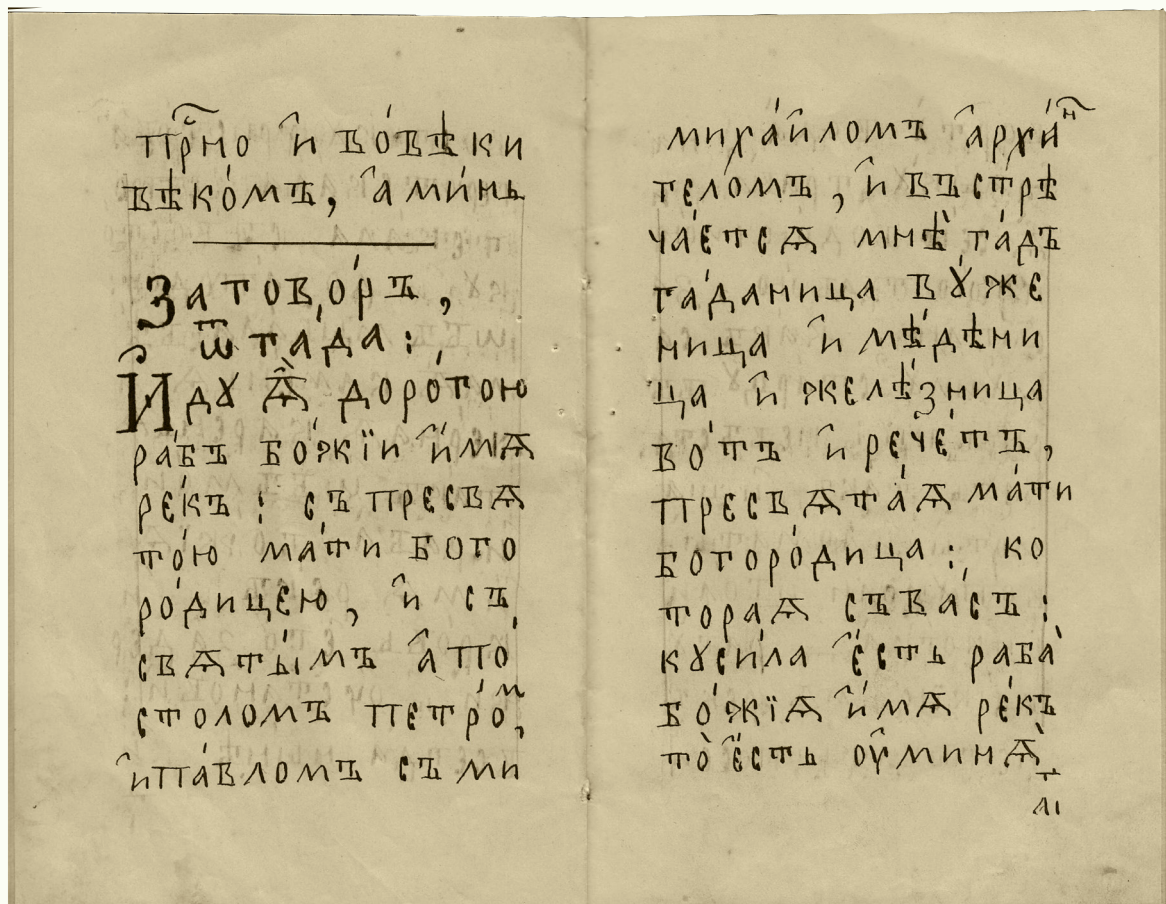 прⷭ҇но и҆ вове́ѣки
вѣко́мъ, а҆ми́нь
Загово́ръ,
ѿ га́да:,
И҆дꙋ ѧ҆̀ доро́гою
ра́бъ бо́жїи и҆́мѧ
ре́къ: съ пресвѧ
то́ю ма́ти бого
ро́дицею, и҆ съ
свѧты́мъ а҆по́
столомъ петро́ⷨ,
и҆па́вломъ съ ми
миха́и҆ломъ а҆рха́ⷩ҇
геломъ, и҆ въстрѣ
ча́етсѧ мнѣ̀ га́дъ
га́даница вꙋже
ница и҆ мѣ́дѣни
ца и҆ желѣ́зница
во́тъ и҆ рече́тъ,
пресвѧта́ѧ ма́ти
богоро́дица:, ко
тораѧ съвасъ:
кꙋси́ла є҆́сть раба̀
бо́жїѧ и҆́мѧ ре́къ
то̀ є҆́сть оу҆минѧ̀
л҃і